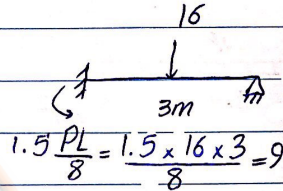 16
3m
1.5 PL/8 = 1.5 x 16 x 3/8 = 9